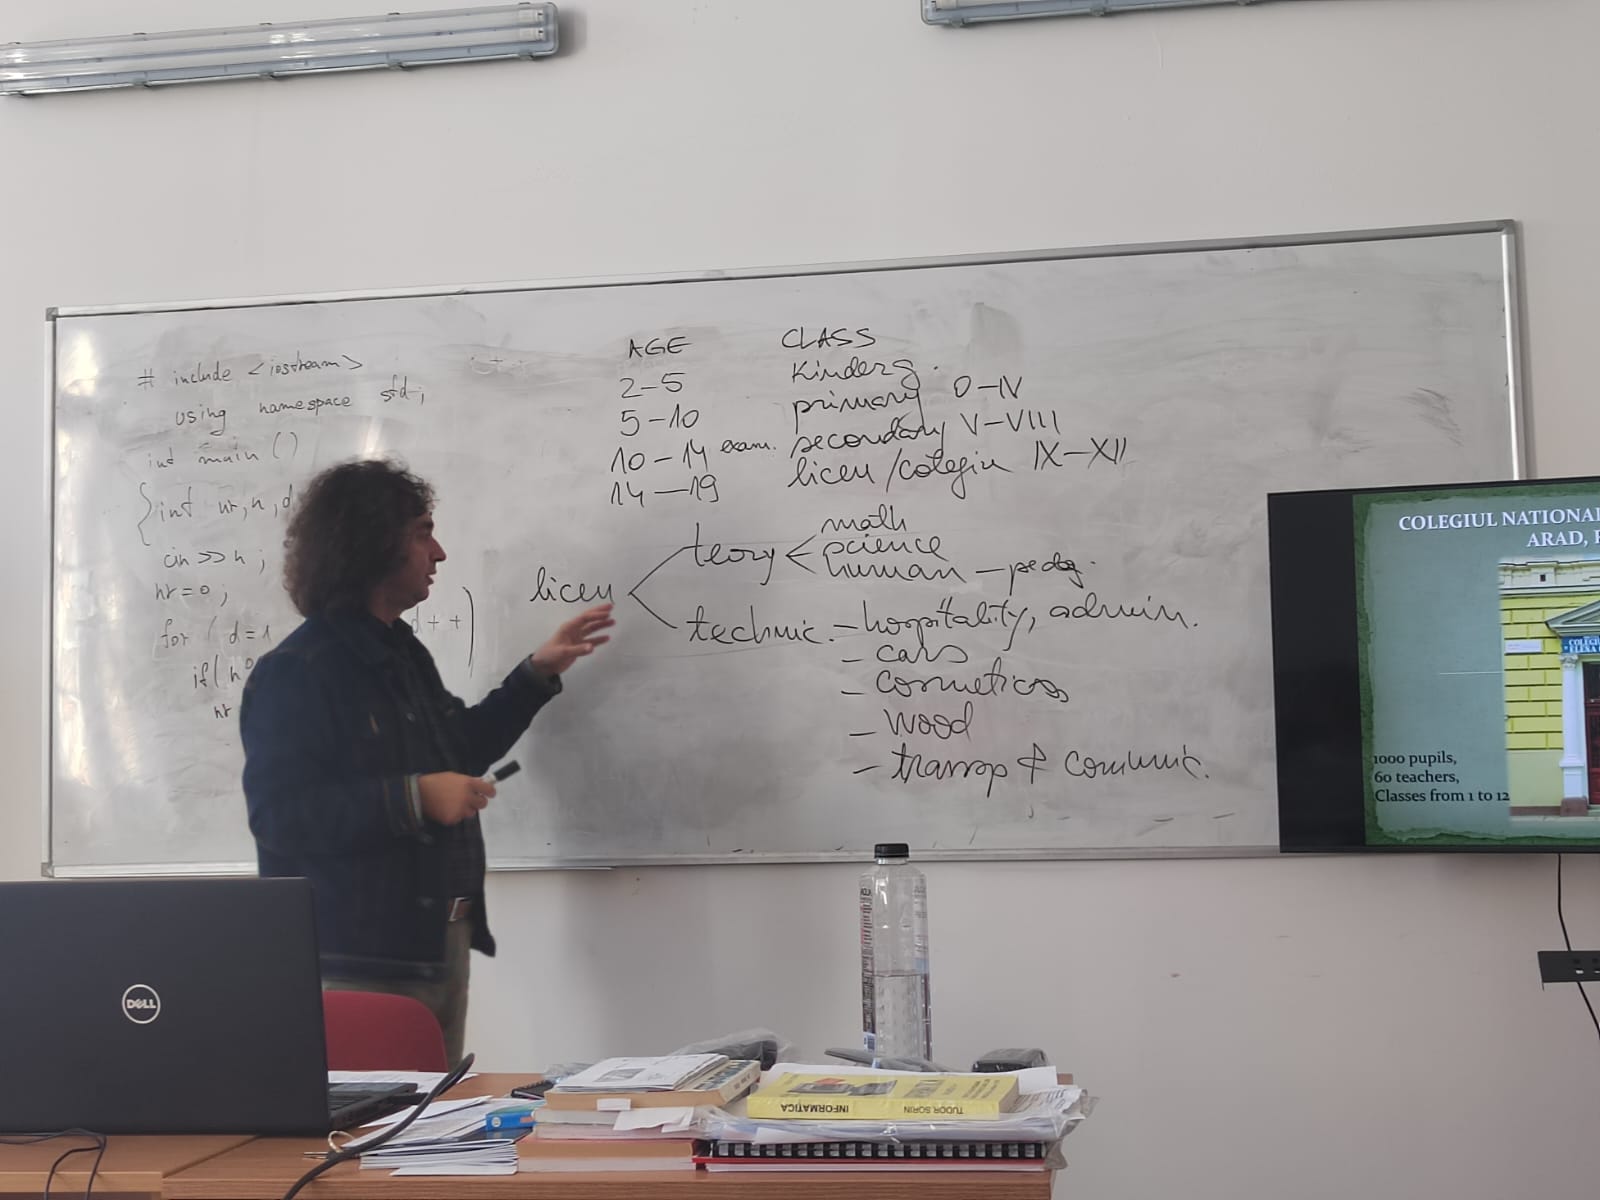 # include <iostream>
using namespace std;
int main ()
{int nr, n, d
cin >> n ;
nr = 0 ;
for ( d = 1 d + + )
if ( n
nr
AGE CLASS
2 – 5 Kinderg.
5 – 10 primary 0 – IV
10 – 14 exam. secondary V – VIII
14 – 19 liceu / colegiu IX – XII
liceu
teory
math
science
human – pedg.
technic. – hospitality, admin.
– cars
– cosmetics
– wood
– transp & comunic.
COLEGIUL NATIONAL
ARAD,
COLEGI
ELENA
1000 pupils,
60 teachers,
Classes from 1 to 12
DELL
INFORMATICA
TUDOR SORIN